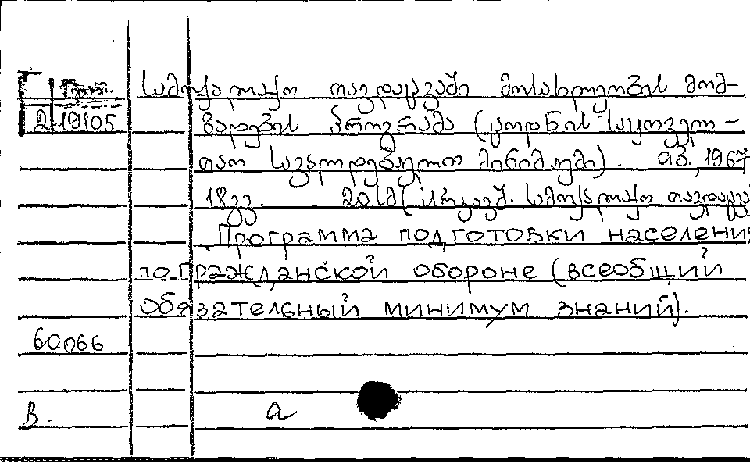 სამოქალაქო თავდაცვაში მოსახლეობის მომ-
2.19105 ზადების პროგრამა (ცოდნის საყოველ-
თაო სავალდებულო მინიმუმი). თბ., 1967
18გვ. 20სმ (სრკავშ. სამოქალაქო თავდაცვ
Программа подготовки населени
по гражданской обороне (всеобщий
обязательный минимум знаний).
60066
В. а